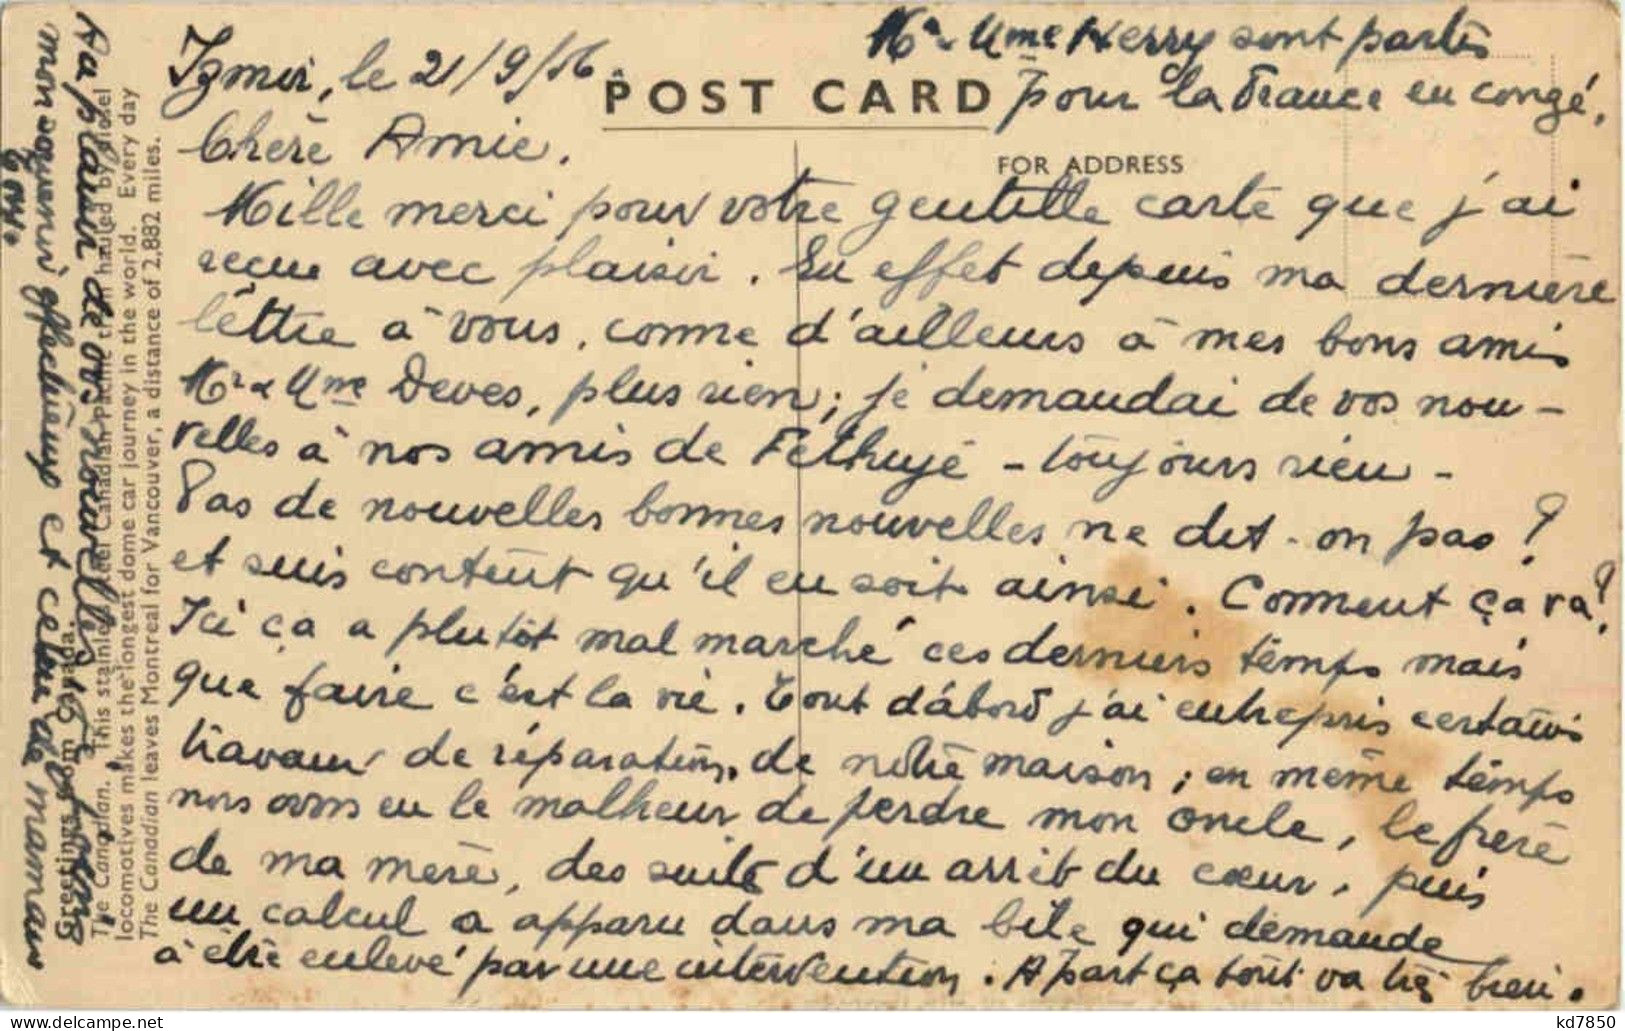 Izmir, le 21/9/56.
Mr & Mme Herry sont partis
pour la France en congé.
POST CARD
FOR ADDRESS
Chère Amie,
Mille merci pour votre gentille carte que j'ai
reçue avec plaisir. En effet depuis ma dernière
lettre à vous, comme d'ailleurs à mes bons amis
Mr & Mme Deves, plus rien; je demandai de vos nou-
velles à nos amis de Fethiyé - toujours rien -
Pas de nouvelles bonnes nouvelles ne dit-on pas ?
et suis content qu'il en soit ainsi. Comment ça va?
Ici ça a plutôt mal marché ces derniers temps mais
que faire c'est la vie. Tout d'abord j'ai entrepris certains
travaux de réparation, de notre maison; en même temps
nous avons eu le malheur de perdre mon oncle, le frère
de ma mère, des suite d'un arrêt du cœur, puis
un calcul a apparu dans ma bile qui demande
à être enlevé par une intervention. A part ça tout va très bien.
Au plaisir de vos nouvelles
mon souvenir affectueux et celui de maman
Greetings from Canada.
The Canadian. This stainless steel Canadian Pacific train hauled by diesel
locomotives makes the longest dome car journey in the world. Every day
The Canadian leaves Montreal for Vancouver, a distance of 2,882 miles.
kd7850